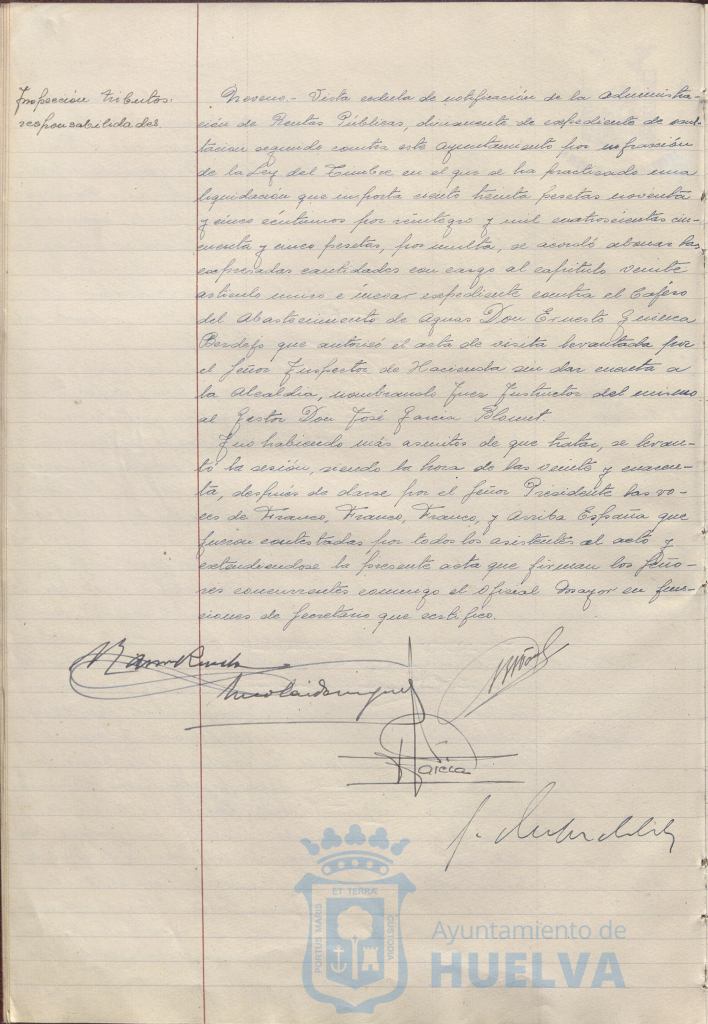 Inspección tributos:
responsabilidades.
Noveno.- Vista cedula de notificación de la Administra-
ción de Rentas Públicas, dimanante de expediente de
segundo contra este Ayuntamiento por infracción
de la Ley del Timbre, en el que se ha practicado una
liquidación que importa ciento treinta pesetas noventa
y cinco céntimos por reintegro y mil cuatrocientas cin-
cuenta y cinco pesetas, por multa, se acordó abonar las
expresadas cantidades con cargo al capítulo veinte
artículo único e incoar expediente contra el Cajero
del Abastecimiento de Aguas Don Ernesto
que autorizó el acta de visita levantada por
el Señor Inspector de Hacienda sin dar cuenta a
la Alcaldía, nombrando Juez Instructor del mismo
al Gestor Don José García
Y no habiendo más asuntos de que tratar, se levan-
tó la sesión, siendo la hora de las veinte y cuaren-
ta, después de darse por el Señor Presidente las vo-
ces de Franco, Franco, Franco, y Arriba España que
fueron contestadas por todos los asistentes al acto y
extendiéndose la presente acta que firman los Seño-
res concurrentes conmigo el Oficial Mayor en fun-
ciones de Secretario que certifico.
García
PORTUS MARIS
ET TERRAE
CUSTODIA
Ayuntamiento de
HUELVA